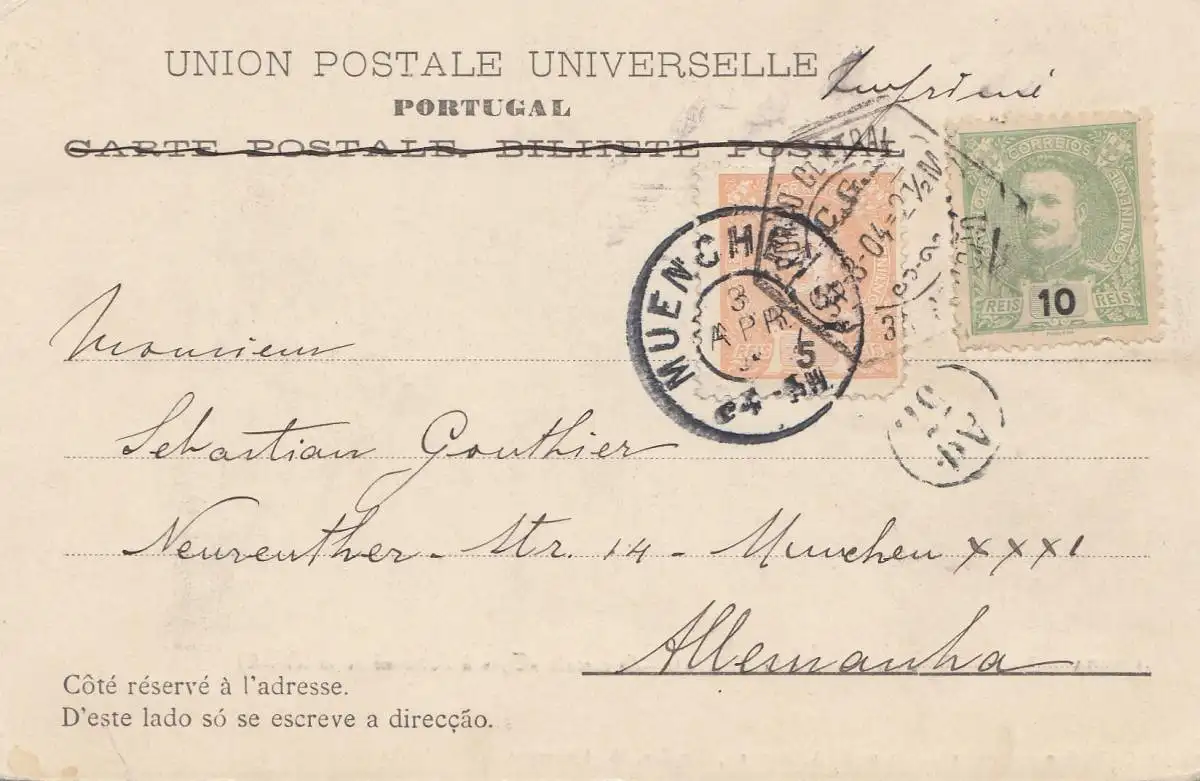 UNION POSTALE UNIVERSELLE
Imprimé
PORTUGAL
CARTE POSTALE. BILHETE POSTAL
CORREIOS
CONTINENTE
REIS 10 REIS
CENTRAL
C.G.
3-04=2½M
MUENCHEN
3
APR.
5
04-AM.
Monsieur
Sebastian Gouthier
Neureuther-Str. 14 - Munchen XXXI
Allemanha
Côté réservé à l'adresse.
D'este lado só se escreve a direcção.